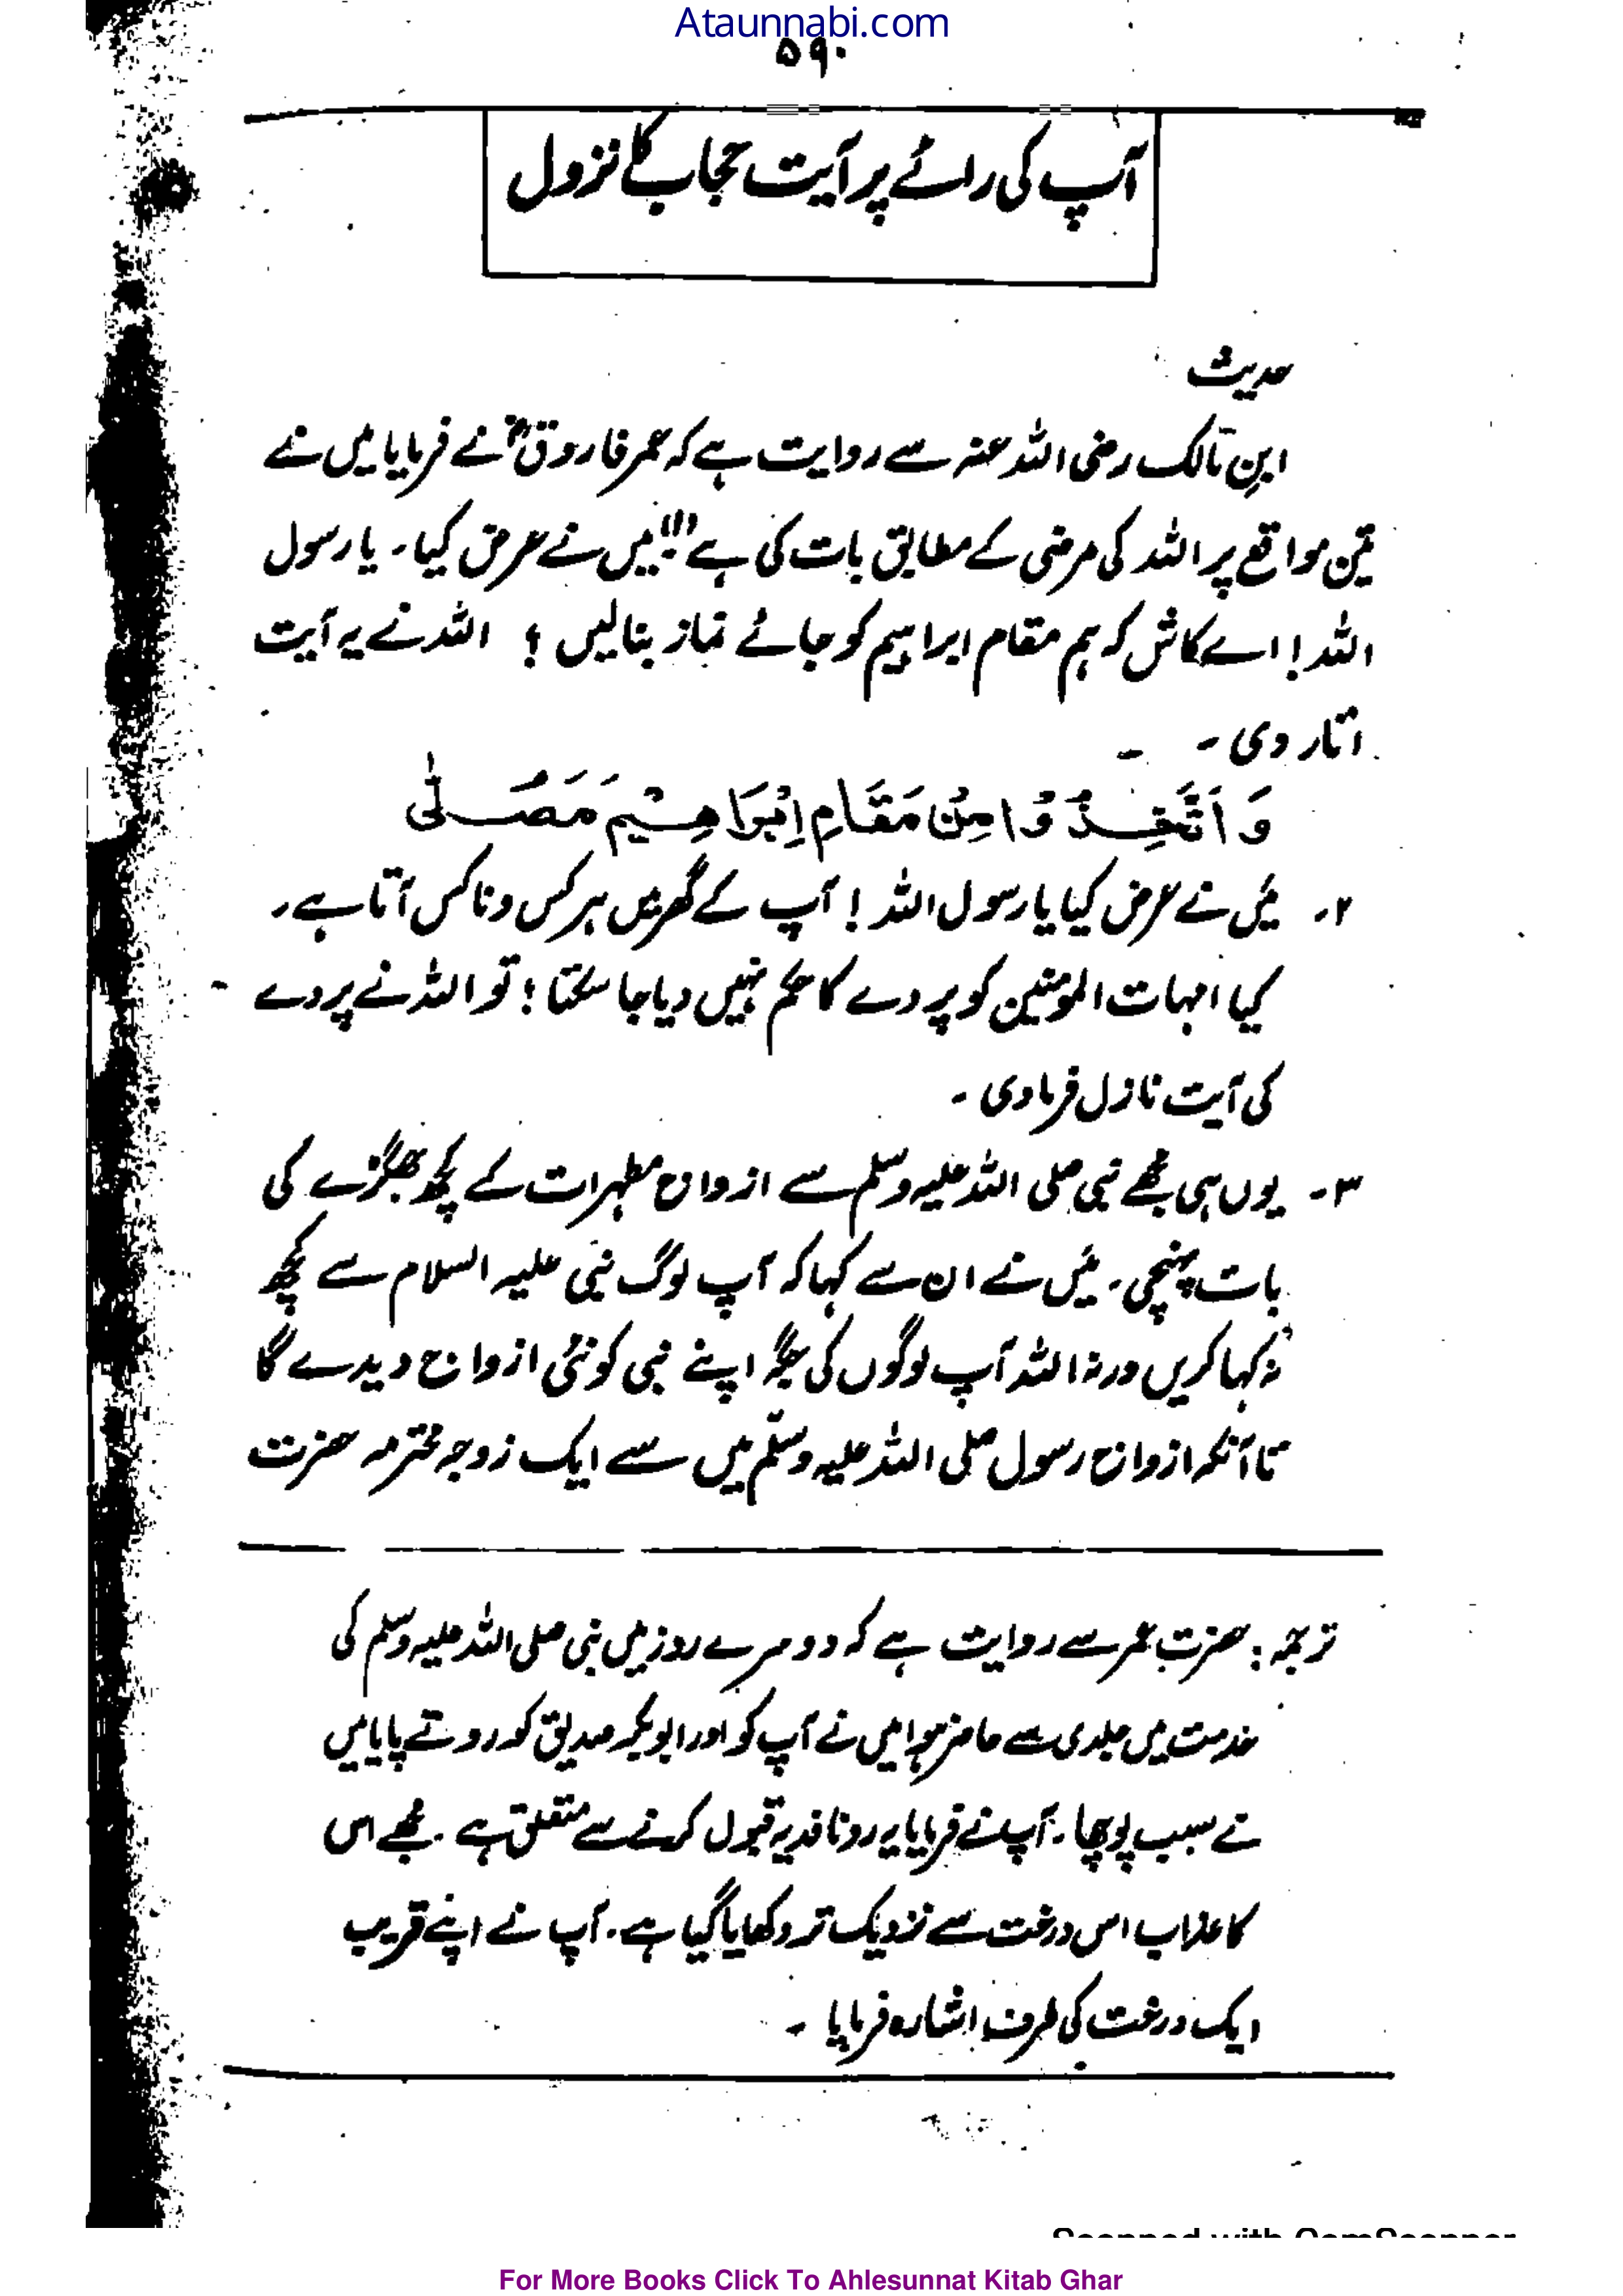 Ataunnabi.com
۵۹۰
آپ کی رائے پر آیت حجاب کا نزول
حدیث
ابنِ مالک رضی اللہ عنہ سے روایت ہے کہ عمر فاروقؓ نے فرمایا میں نے
تین مواقع پر اللہ کی مرضی کے مطابق بات کی ہے (۱) میں نے عرض کیا۔ یا رسول
اللہ! اے کاش کہ ہم مقام ابراہیم کو جائے نماز بنا لیں ؟ اللہ نے یہ آیت
اتار دی ۔
وَ اَتَّخِذُوْا مِنْ مَقَامِ اِبْرَاهِيْمَ مَصُلّٰى
۲۔ میَں نے عرض کیا یا رسول اللہ ! آپ کے گھر میں ہر کس و ناکس آتا ہے۔
کیا امہات المومنین کو پردے کا حکم نہیں دیا جا سکتا ؟ تو اللہ نے پردے
کی آیت نازل فرما دی ۔
۳۔ یوں ہی مجھے نبی صلی اللہ علیہ وسلم سے ازواج مطہرات کے کچھ جھگڑے کی
بات پہنچی۔ میَں نے ان سے کہا کہ آپ لوگ نبی علیہ السلام سے کچھ
نہ کہا کریں ورنہ اللہ آپ لوگوں کی جگہ اپنے نبی کو نئی ازواج دیدے گا
تا آنکہ ازواج رسول صلی اللہ علیہ وسلّم میں سے ایک زوجہ محترمہ حضرت
ترجمہ : حضرتِ عمر سے روایت ہے کہ دوسرے روز میں نبی صلی اللہ علیہ وسلم کی
خدمت میں جلدی سے حاضر ہوا میں نے آپ کو اور ابوبکر صدیق کو روتے پایا میں
نے سبب پوچھا۔ آپ نے فرمایا یہ رونا فدیہ قبول کرنے سے متعلق ہے۔ مجھے اس
کا عذاب اس درخت سے نزدیک تر دکھایا گیا ہے۔ آپ نے اپنے قریب
ایک درخت کی طرف اشارہ فرمایا ۔
Scanned with CamScanner
For More Books Click To Ahlesunnat Kitab Ghar